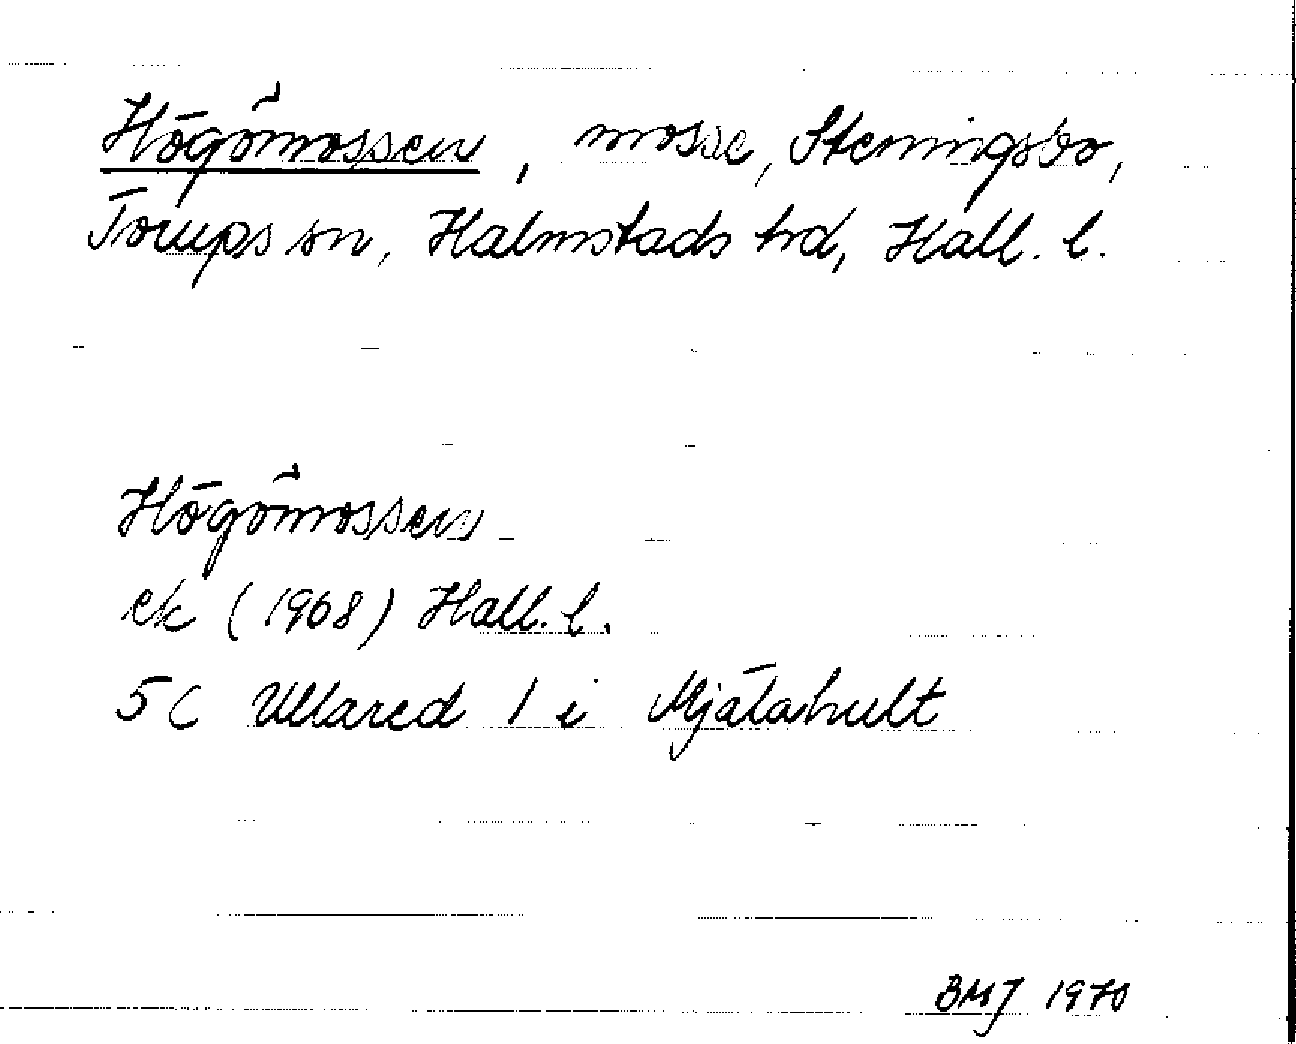 Högömossen, mosse, Steningsbo,
Torups sn, Halmstads hd, Hall. l.
Högömossen
ek (1968) Hall. l.
5C Ullared 1 i Mjälahult
BMJ 1970